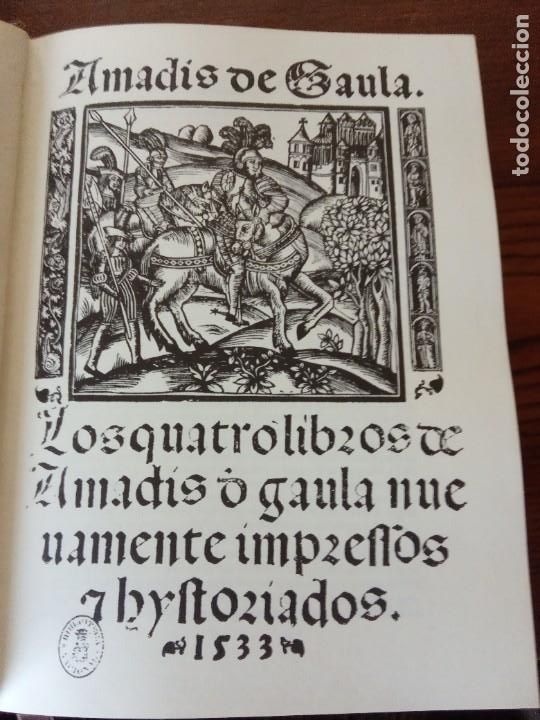 Amadis de Gaula.
Los quatro libros de
Amadis d̄ gaula nue
uamente impressos
⁊ hystoriados.
1533
todocoleccion